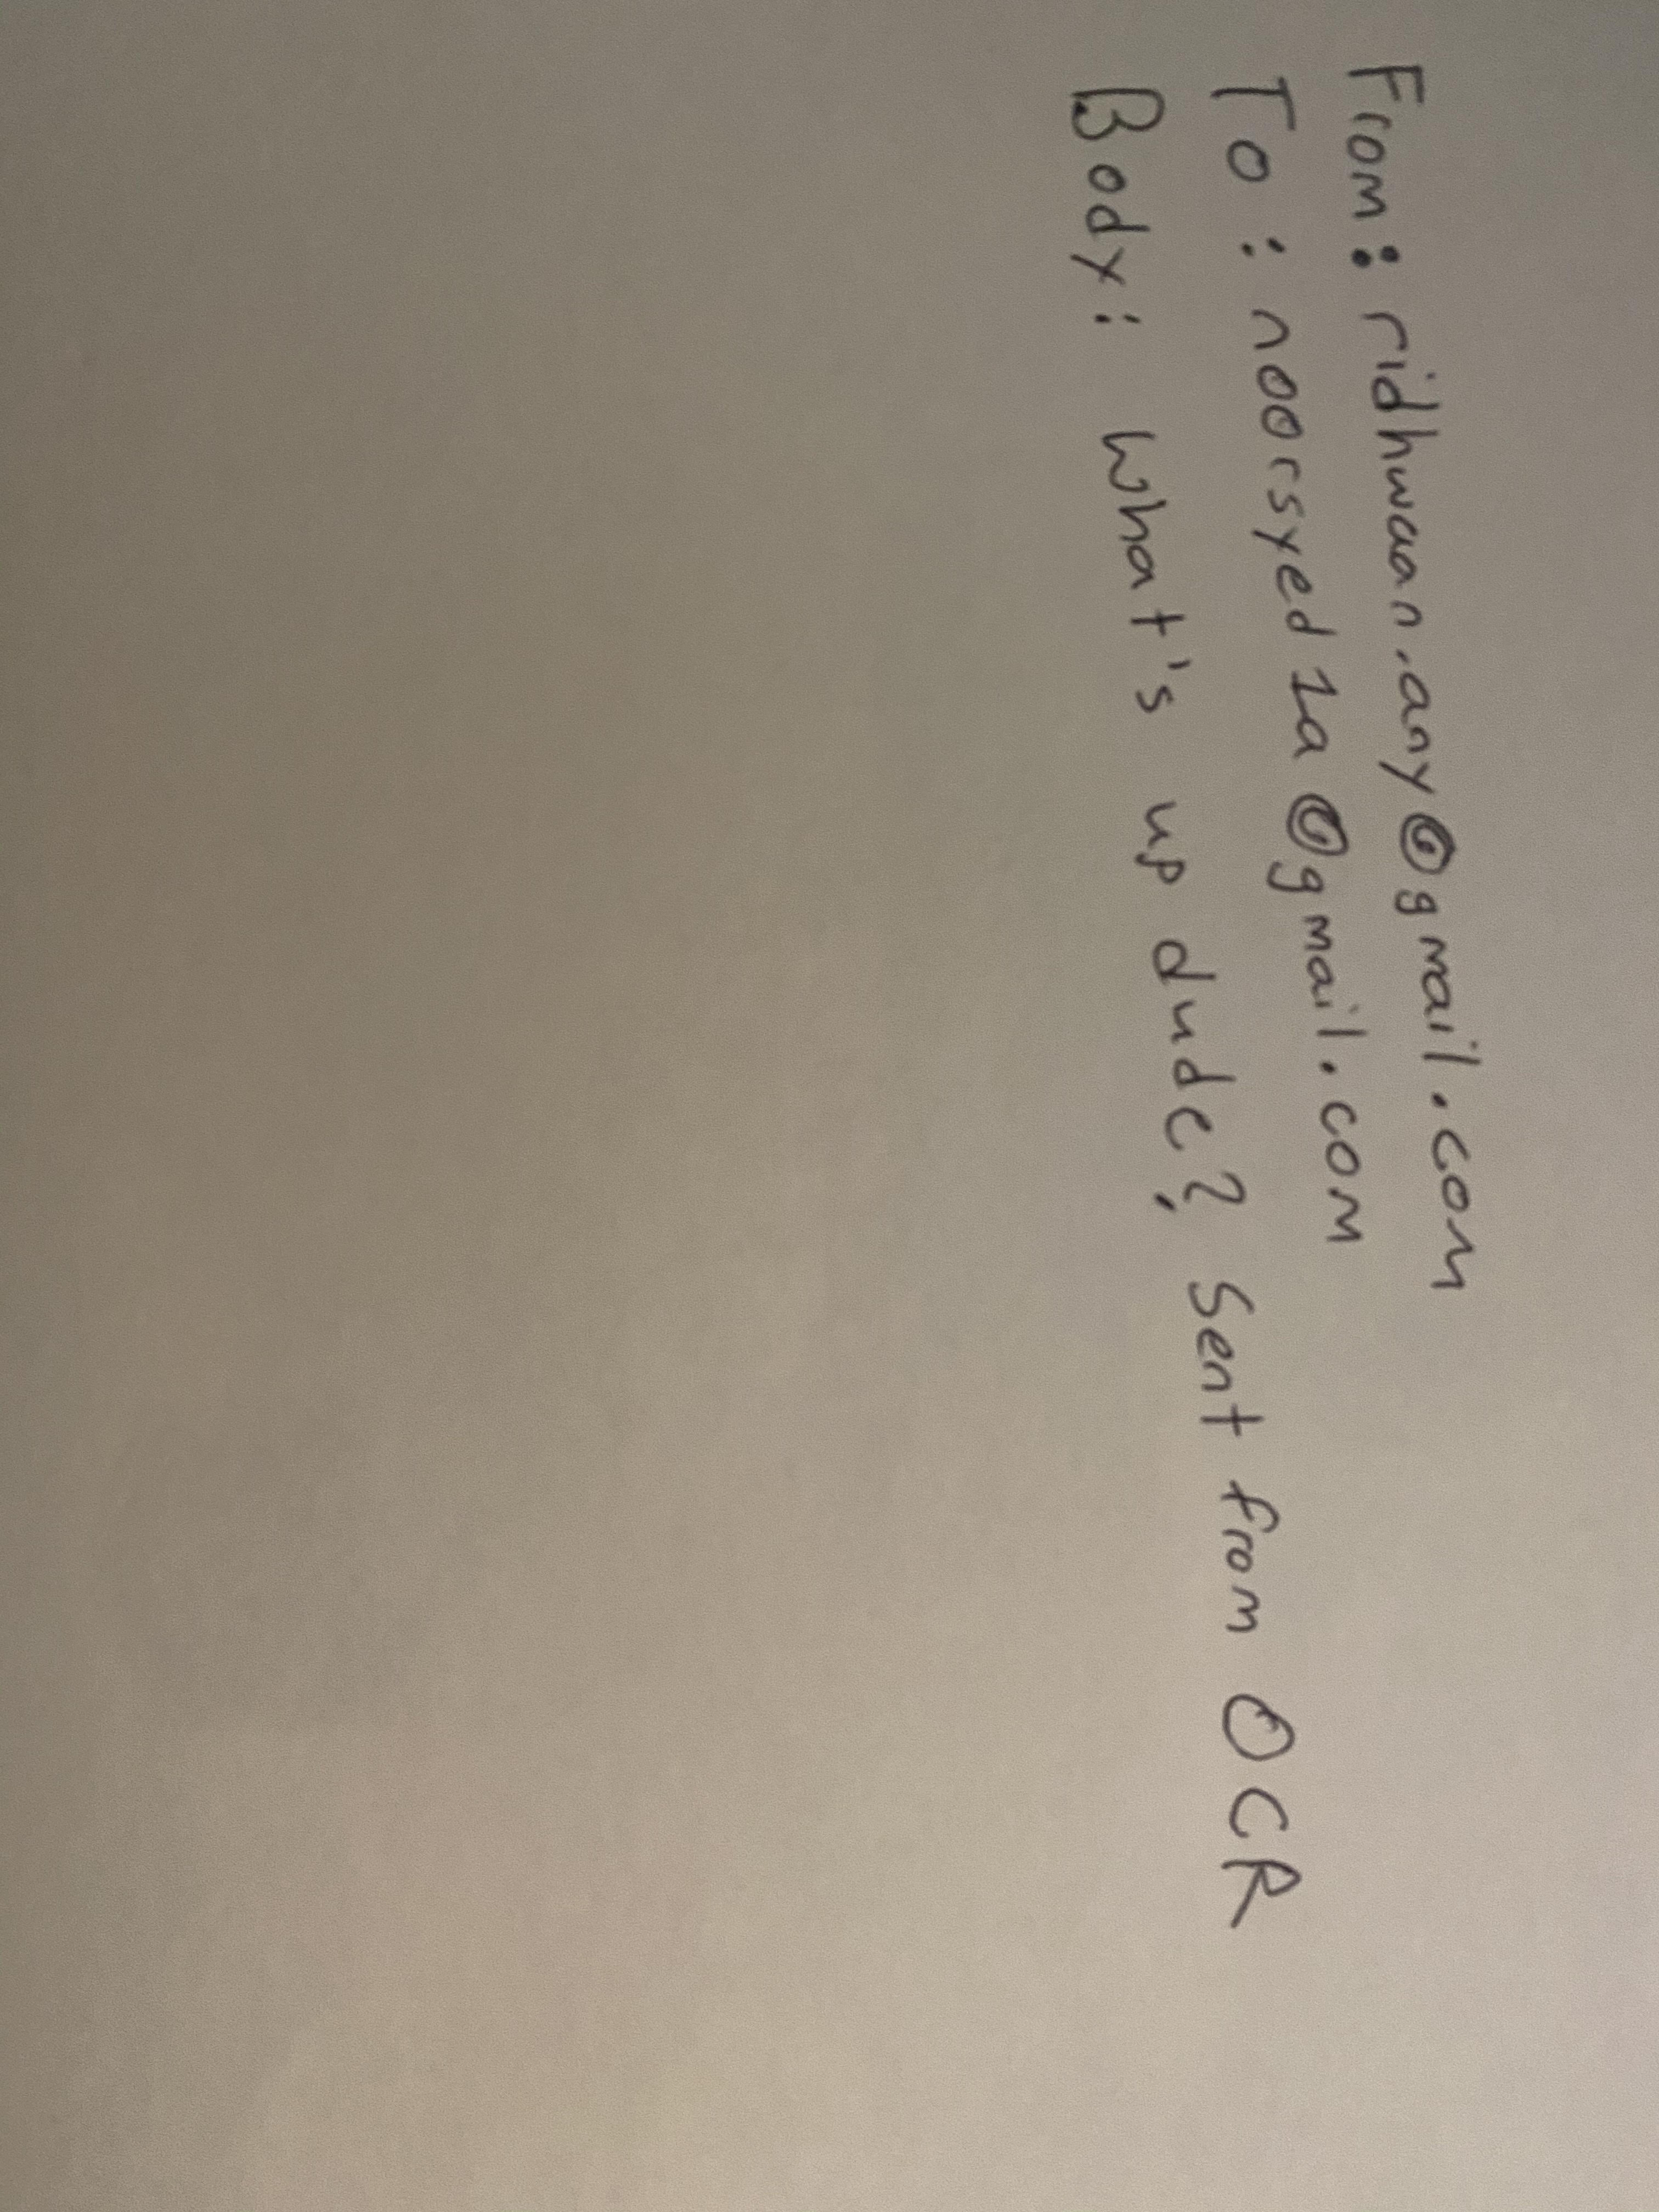 From: ridhwaan.any@gmail.com
To: noorsyed1a@gmail.com
Body: What's up dude? Sent from OCR